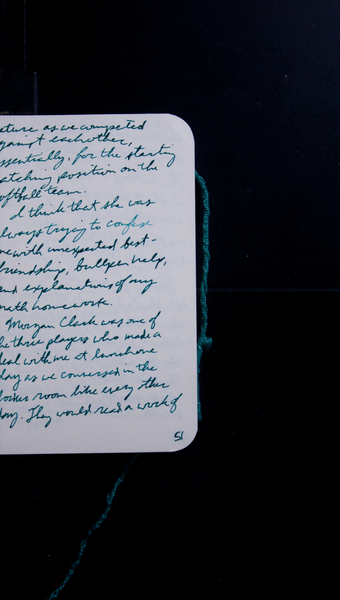 ature as we competed
against each other,
ssentially, for the starting
atching position on the
oftball team.
I think that she was
lways trying to confuse
me with unexpected best-
friendship, bullpen help,
and explanations of my
math homework.
Morgan Clark was one of
he three players who made a
deal with me at lunch one
day as we conversed in the
locker room like every other
day. They would read a work of
51